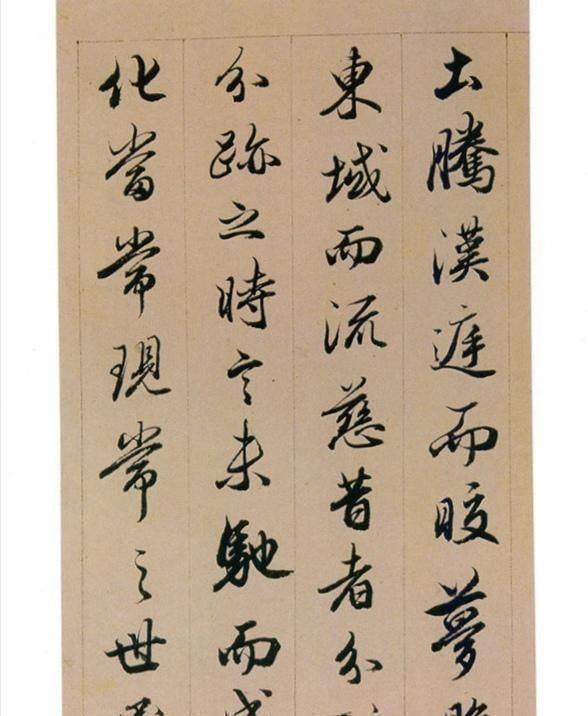 土騰漢庭而晈夢
東域而流慈昔者分
分跡之時言未馳而成
化當常現常之世